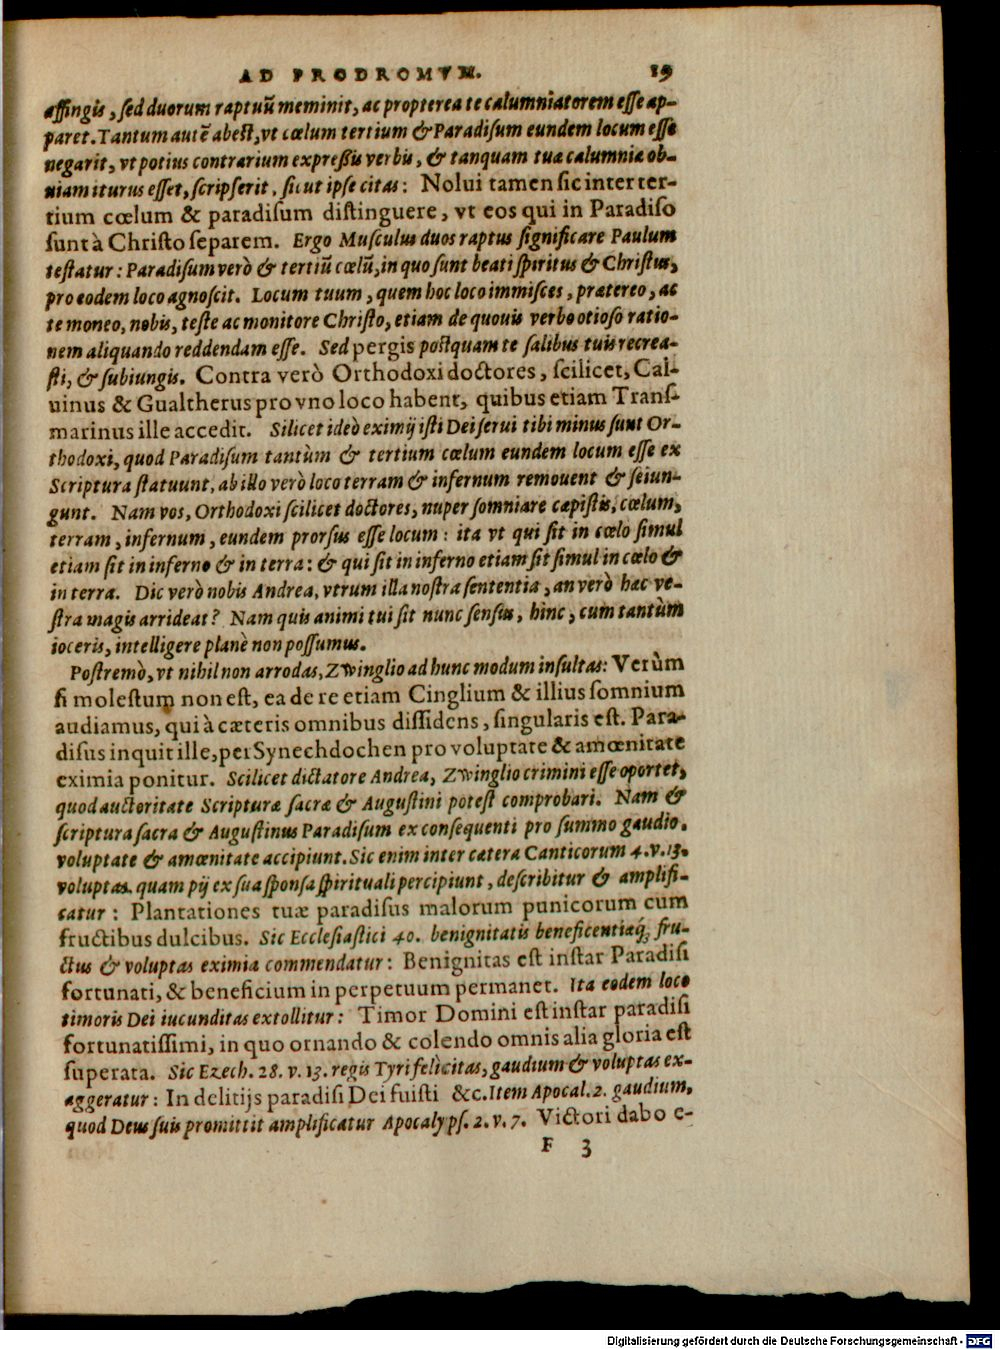 AD PRODROMVM. 19
affingis, sed duorum raptuũ meminit, ac propterea te calumniatorem esse ap-
paret. Tantum autẽ abest, vt cœlum tertium & Paradisum eundem locum esse
negarit, vt potius contrarium expreßis verbis, & tanquam tuæ calumniæ ob-
uiam iturus esset, scripserit, sicut ipse citas: Nolui tamen sic inter ter-
tium cœlum & paradisum distinguere, vt eos qui in Paradiso
sunt à Christo separem. Ergo Musculus duos raptus significare Paulum
testatur: Paradisum verò & tertiũ cœlũ, in quo sunt beati spiritus & Christus,
pro eodem loco agnoscit. Locum tuum, quem hoc loco immisces, prætereo, ac
te moneo, nobis, teste ac monitore Christo, etiam de quouis verbo otioso ratio-
nem aliquando reddendam esse. Sed pergis postquam te salibus tuis recrea-
sti, & subiungis. Contra verò Orthodoxi doctores, scilicet, Cal-
uinus & Gualtherus pro vno loco habent, quibus etiam Trans-
marinus ille accedit. Silicet ideò eximij isti Dei serui tibi minus sunt Or-
thodoxi, quod Paradisum tantùm & tertium cœlum eundem locum esse ex
Scriptura statuunt, ab illo verò loco terram & infernum remouent & seiun-
gunt. Nam vos, Orthodoxi scilicet doctores, nuper somniare cæpistis, cœlum,
terram, infernum, eundem prorsus esse locum: ita vt qui sit in cœlo simul
etiam sit in inferno & in terra: & qui sit in inferno etiam sit simul in cœlo &
in terra. Dic verò nobis Andrea, vtrum illa nostra sententia, an verò hæc ve-
stra magis arrideat? Nam quis animi tui sit nunc sensus, hinc, cum tantùm
ioceris, intelligere planè non possumus.
Postremò, vt nihil non arrodas, Zwinglio ad hunc modum insultas: Verùm
si molestum non est, ea de re etiam Cinglium & illius somnium
audiamus, qui à cæteris omnibus dissidens, singularis est. Para-
disus inquit ille, per Synechdochen pro voluptate & amœnitate
eximia ponitur. Scilicet dictatore Andrea, Zwinglio crimini esse oportet,
quod auctoritate Scripturæ sacræ & Augustini potest comprobari. Nam &
scriptura sacra & Augustinus Paradisum ex consequenti pro summo gaudio,
voluptate & amœnitate accipiunt. Sic enim inter cætera Canticorum 4. v. 13.
voluptas quam pij ex sua sponsa spirituali percipiunt, describitur & amplifi-
catur: Plantationes tuæ paradisus malorum punicorum cum
fructibus dulcibus. Sic Ecclesiastici 40. benignitatis beneficentiæq́; fru-
ctus & voluptas eximia commendatur: Benignitas est instar Paradisi
fortunati, & beneficium in perpetuum permanet. Ita eodem loco
timoris Dei iucunditas extollitur: Timor Domini est instar paradisi
fortunatissimi, in quo ornando & colendo omnis alia gloria est
superata. Sic Ezech. 28. v. 13. regis Tyri felicitas, gaudium & voluptas ex-
aggeratur: In delitijs paradisi Dei fuisti &c. Item Apocal. 2. gaudium,
quod Deus suis promittit amplificatur Apocalyps. 2. v. 7. Victori dabo e-
F 3
Digitalisierung gefördert durch die Deutsche Forschungsgemeinschaft - DFG